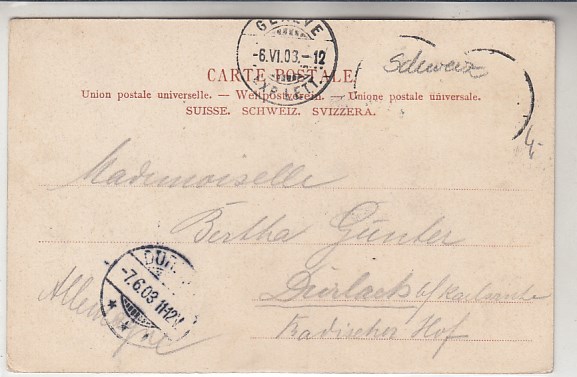 GENÈVE
-6.VI.03.-12
EXP. LETT.
Schweiz
CARTE POSTALE
Union postale universelle. — Weltpostverein. — Unione postale universale.
SUISSE. SCHWEIZ. SVIZZERA.
4,-
Mademoiselle
Bertha Günter
DUR
-7.6.03 11-12V
Durlach b/Karlsruhe
Allemagne
Badischer Hof